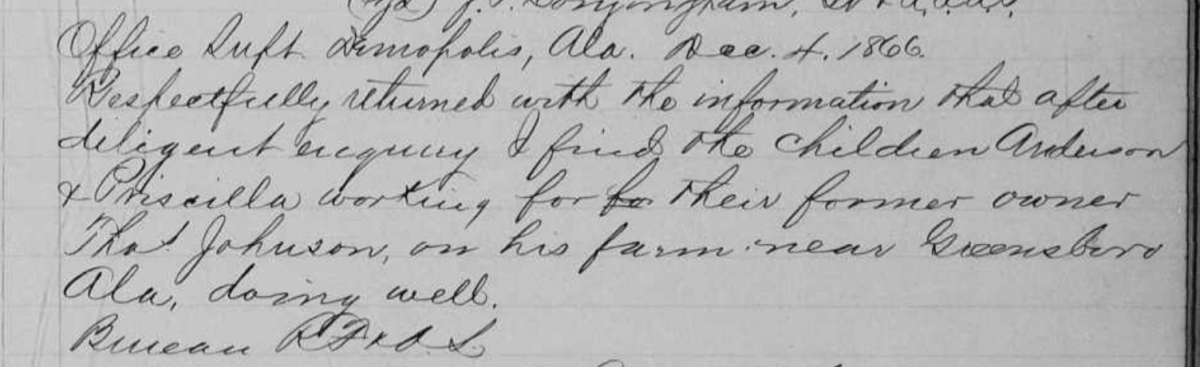 Office Supt. Demopolis, Ala. Dec. 4. 1866.
Respectfully returned with the information that after
diligent enquiry I find the children Anderson
& Priscilla working for for their former owner
Thos. Johnson, on his farm near Greensboro
Ala, doing well.
Bureau R. F. & A. L.